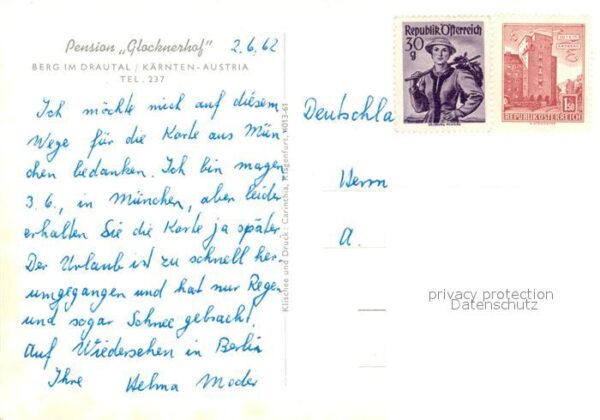 Pension „Glocknerhof"
BERG IM DRAUTAL / KÄRNTEN-AUSTRIA
TEL. 237
2.6.62
Ich möchte mich auf diesem
Wege für die Karte aus Mün-
chen bedanken. Ich bin magen
3.6., in München, aber leider
erhalten Sie die Karte ja später.
Der Urlaub ist zu schnell her-
umgegangen und hat nur Regen
und sogar Schnee gebracht.
Auf Wiedersehen in Berlin
Ihre Helma Moder
Klischee und Druck: Carinthia, Klagenfurt. 4013-61
Republik Österreich
30
g
1.50
REPUBLIK ÖSTERREICH
Deutschla
Herrn
A.
privacy protection
Datenschutz